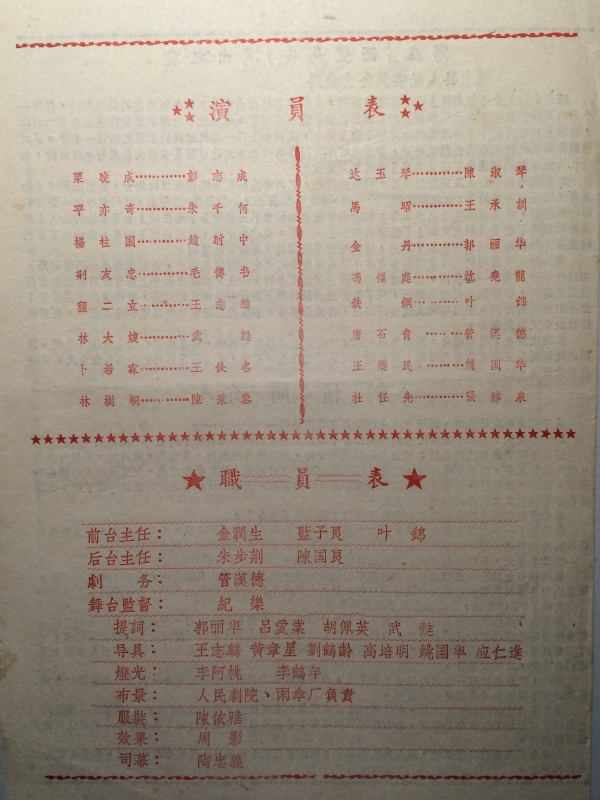 演員表
栗晚成…………彭志成
平亦奇…………朱千何
楊柱国…………趙时中
荆友忠…………毛傳书
程二立…………王志麟
林大嫂…………武
卜希霖…………王佚名
林樹桐…………陳秉鋆
达玉琴…………陳淑琴
馬昭…………王承訓
金丹…………郭丽华
馮福庭…………沈堯龍
鉄鋼…………叶錦
唐石青…………管漢德
王樂民…………姚国华
杜任先…………張勝泉
職員表
前台主任：金潤生 藍子良 叶錦
后台主任：朱步荆 陳国良
劇务：管漢德
舞台監督：紀樂
提詞：郭丽华 呂愛棠 胡佩英 武
导具：王志麟 黄章星 劉鶴齡 高培明 姚国华 应仁進
燈光：李阿桃 李鶴年
布景：人民劇院、雨傘厂負責
服裝：陳依雅
效果：周影
司幕：陶忠義